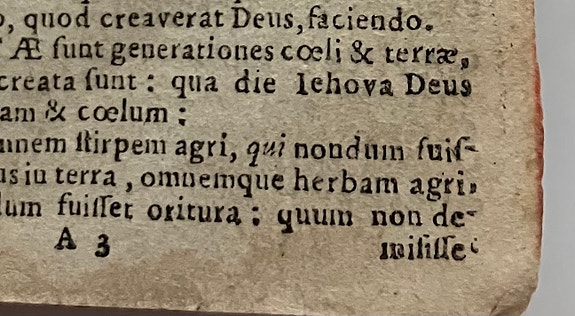 , quod creaverat Deus, faciendo.
Æ ſunt generationes cœli & terræ,
creata ſunt : qua die Iehova Deus
am & cœlum :
mnem ſtirpem agri, qui nondum fuiſ-
us in terra, omnemque herbam agri,
dum fuiſſet oritura : quum non de-
A 3 miſiſſet